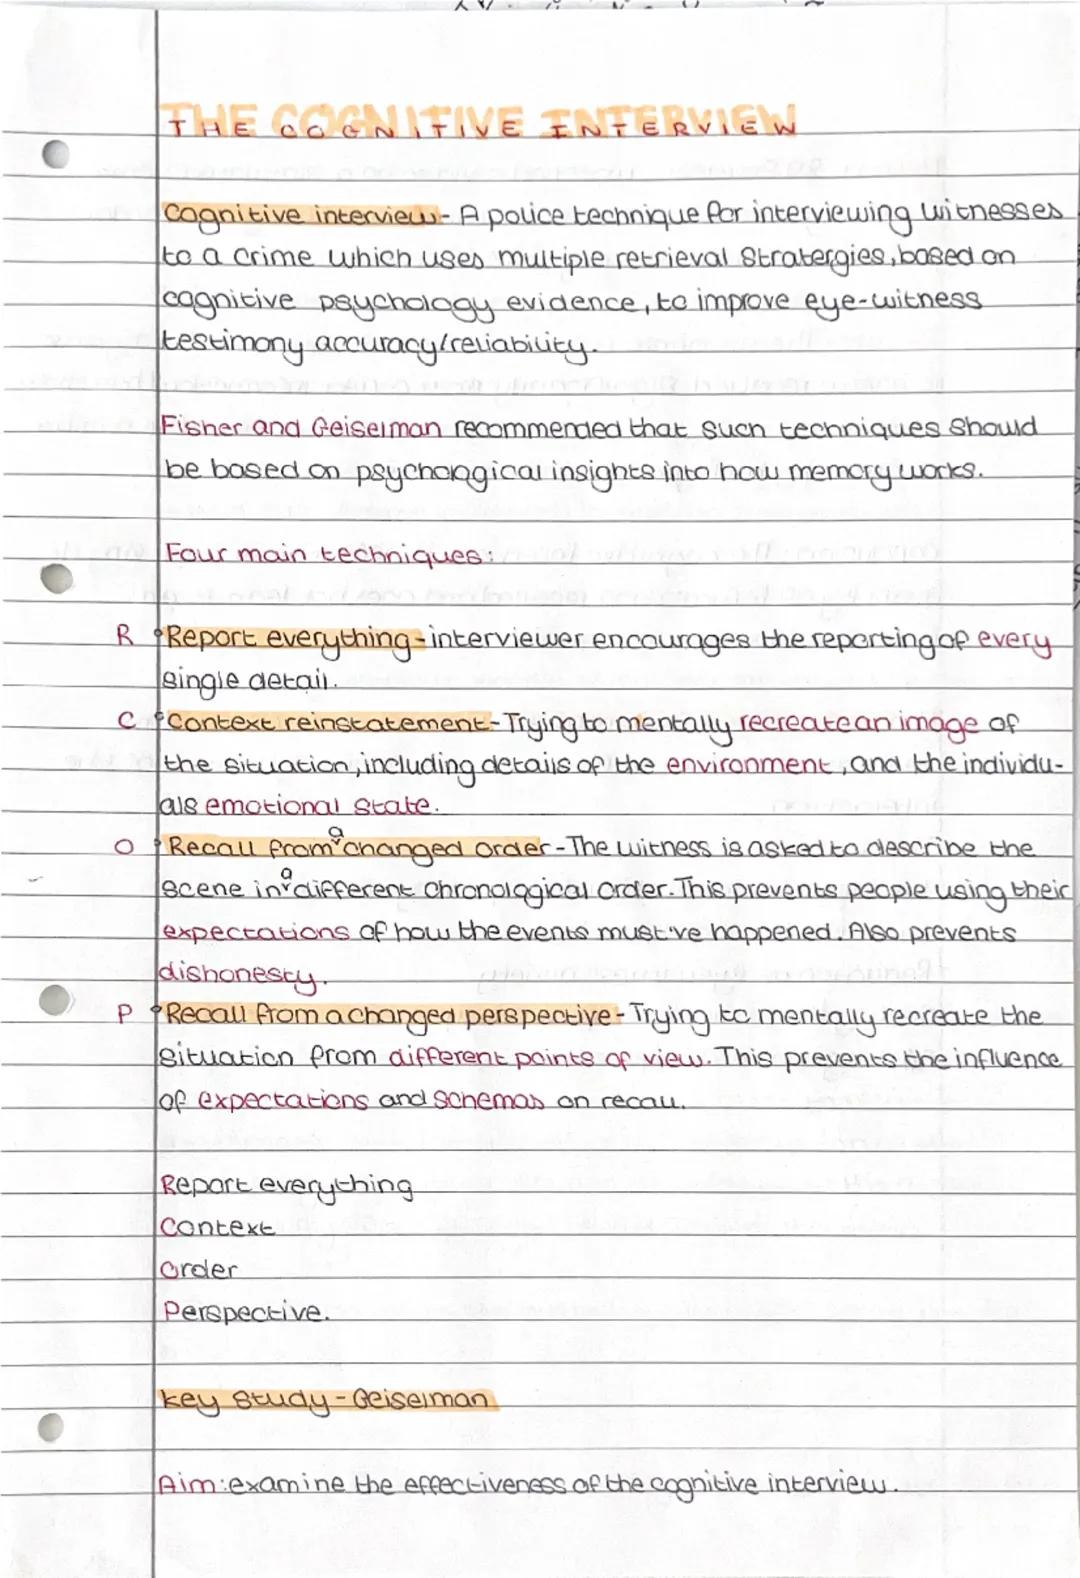 THE COGNITIVE INTERVIEW
Cognitive interview - A police technique for interviewing witnesses
to a crime which uses multiple retrieval Stratergies, based on
cognitive psychology evidence, to improve eye-witness
testimony accuracy/reliability.
Fisher and Geiselman recommended that such techniques should
be based on psychological insights into how memory works.
Four main techniques:
R Report everything - interviewer encourages the reporting of every
single detail.
C Context reinstatement - Trying to mentally recreate an image of
the situation, including details of the environment, and the individu-
als emotional state.
O Recall from a changed order - The witness is asked to describe the
scene in a different chronological order. This prevents people using their
expectations of how the events must've happened. Also prevents
dishonesty.
P Recall from a changed perspective - Trying to mentally recreate the
situation from different points of view. This prevents the influence
of expectations and schemas on recall.
Report everything
Context
Order
Perspective.
key study - Geiselman
Aim: examine the effectiveness of the cognitive interview.